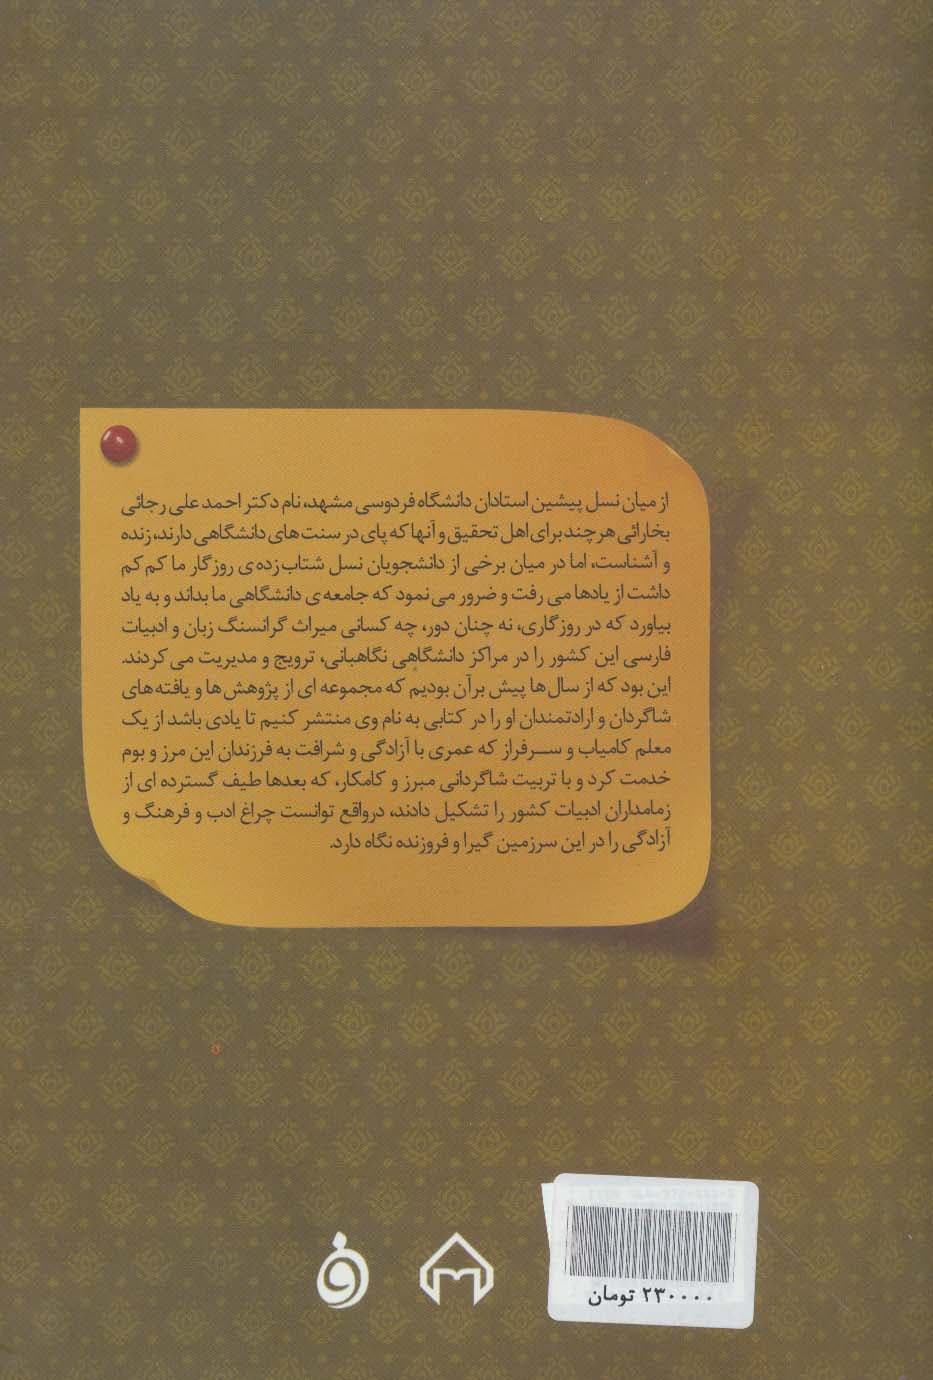 از میان نسل پیشین استادان دانشگاه فردوسی مشهد، نام دکتر احمد علی رجائی
بخارائی هرچند برای اهل تحقیق و آنها که پای در سنت های دانشگاهی دارند، زنده
و آشناست، اما در میان برخی از دانشجویان نسل شتاب زده ی روزگار ما کم کم
داشت از یادها می رفت و ضرور می نمود که جامعه ی دانشگاهی ما بداند و به یاد
بیاورد که در روزگاری، نه چنان دور، چه کسانی میراث گرانسنگ زبان و ادبیات
فارسی این کشور را در مراکز دانشگاهی نگاهبانی، ترویج و مدیریت می کردند.
این بود که از سال ها پیش برآن بودیم که مجموعه ای از پژوهش ها و یافته های
شاگردان و ارادتمندان او را در کتابی به نام وی منتشر کنیم تا یادی باشد از یک
معلم کامیاب و سرفراز که عمری با آزادگی و شرافت به فرزندان این مرز و بوم
خدمت کرد و با تربیت شاگردانی مبرز و کامکار، که بعدها طیف گسترده ای از
زمامداران ادبیات کشور را تشکیل دادند، درواقع توانست چراغ ادب و فرهنگ و
آزادگی را در این سرزمین گیرا و فروزنده نگاه دارد.
۲۳۰۰۰۰ تومان